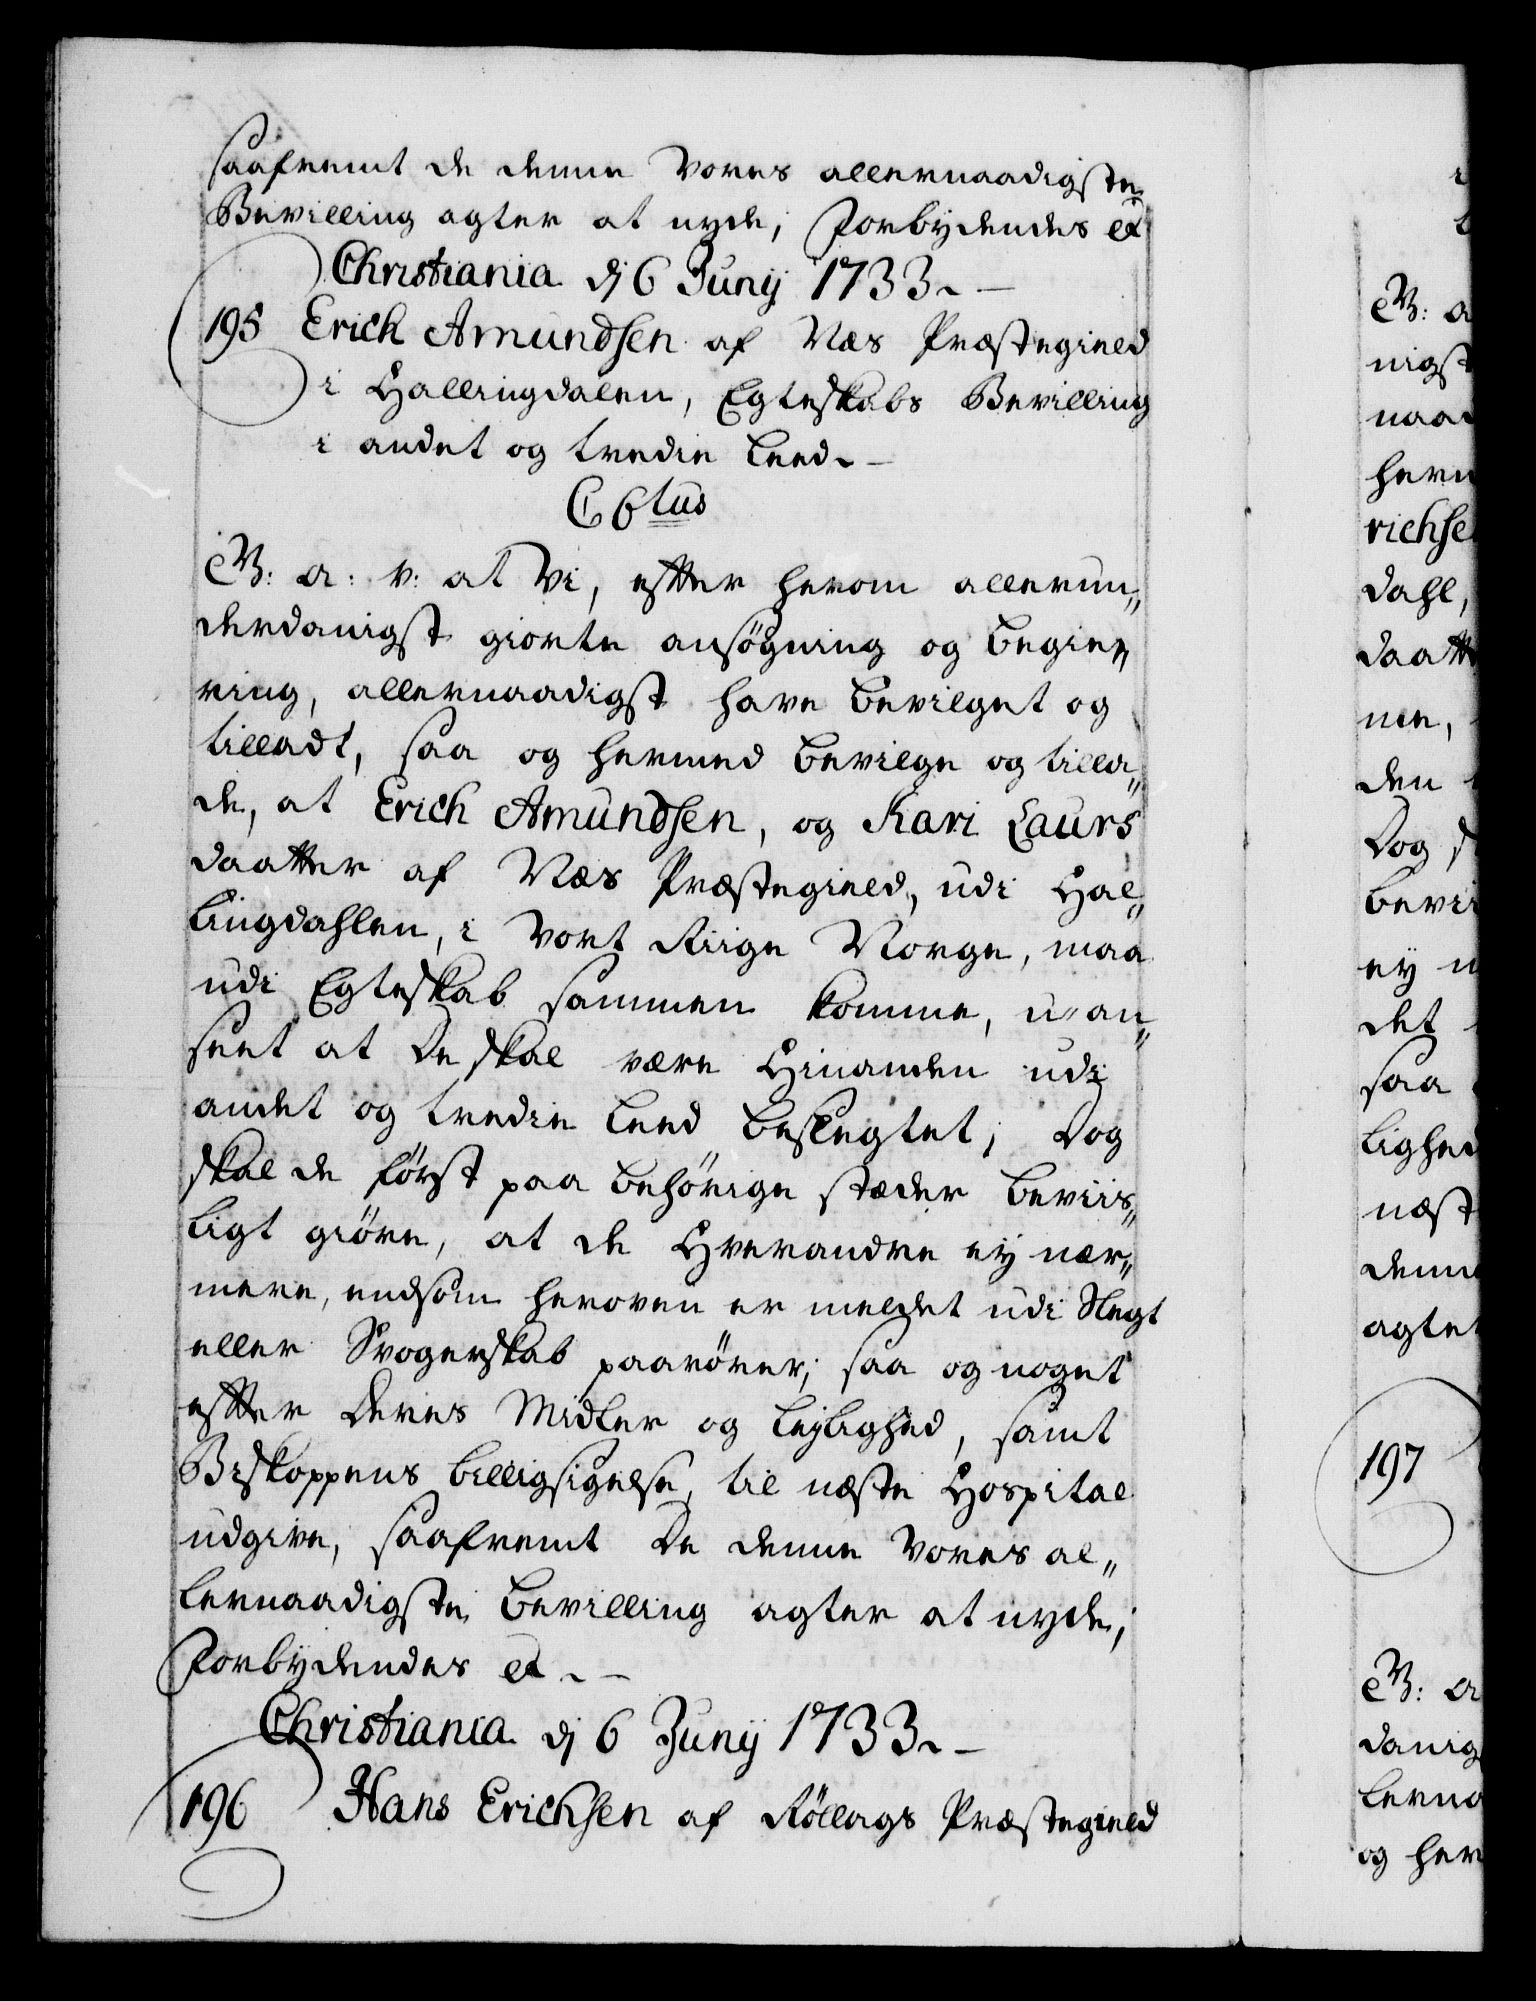 saafremt de denne Vores allernaadigste
Bevilling agter at nyde, Forbydendes etc
Christiania dj 6 Junij 1733.
195 Erich Amundsen af Næs Præstegield
i Hallingdalen, Egteskabs Bevilling
i andet og tredie Leed.
C 6tus
G: a: v: at Vi, efter herom allerun„
derdanigst giorte ansøgning og begie„
ring, allernaadigst have bevilget og
tilladt, saa og hermed bevilge og tilla„
de, at Erich Amundsen, og Kari Laurs
daatter af Næs Præstegield, udi Hal„
lingdahlen, i Vort Riige Norge, maa
udi Egteskab sammen komme, u-an„
seet at De skal være Hinanden udi
andet og tredie Leed beslegtet; Dog
skal de først paa behørige stæder beviis„
ligt giøre, at de Hverandre ey nær„
mere, endsom heroven er meldet udi Slegt
eller Svogerskab paarører; saa og noget
efter Deres Midler og Leylighed, samt
Biskoppens billigsigelse, til næste Hospital
udgive, saafremt De denne Vores al„
lernaadigste bevilling agter at nyde,
Forbydendes etc.
Christiania dj 6 Junij 1733.
196 Hans Erichsen af Rollags Præstegield
G: a
nigst
naad
herm
richse
dahl,
daatt
me,
den
Dog s
bevii
ey n
det
saa
lighed
næst
denne
agter
197
G: a
danig
lerna
og her